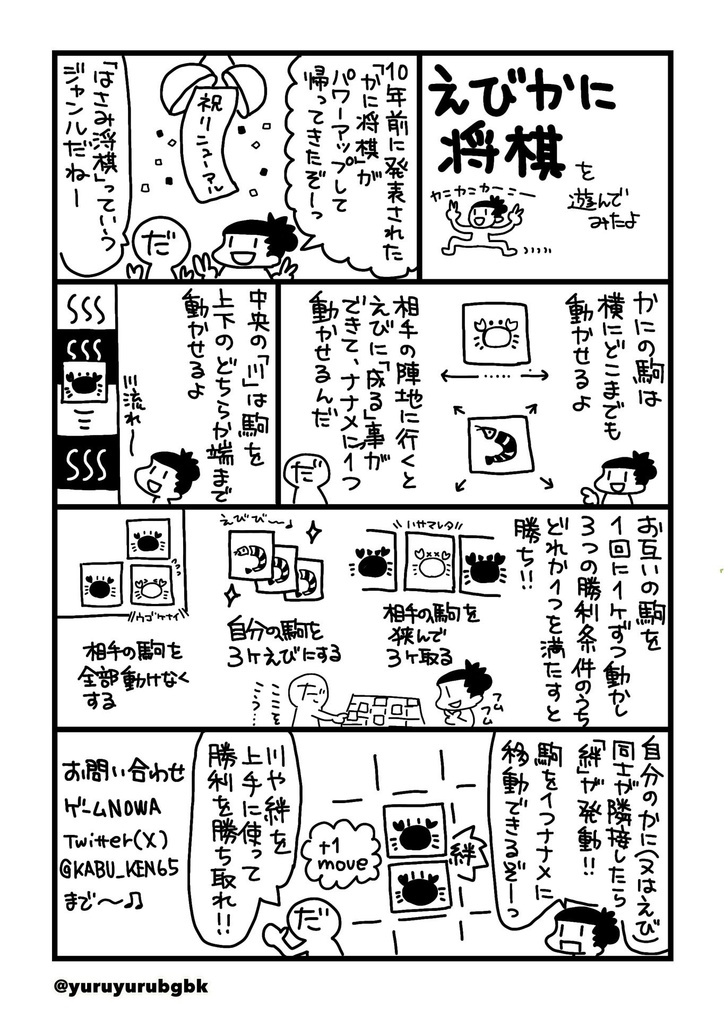 えびかに
将棋を
遊んで
みたよ
カニカニカーニー
10年前に発表された
「かに将棋」が
パワーアップして
帰ってきたぞーっ
祝リニューアル
だ
「はさみ将棋」っていう
ジャンルだねー
かにの駒は
横にどこまでも
動かせるよ
相手の陣地に行くと
えびに「成る」事が
できて、ナナメに1つ
動かせるんだ
だ
中央の「川」は駒を
上下のどちらか端まで
動かせるよ
川流れー
お互いの駒を
1回に1ケずつ動かし
3つの勝利条件のうち
どれか1つを満たすと
勝ち!!
ハサマレタ
相手の駒を
狭んで
3ケ取る
えびび〜♪
自分の駒を
3ケえびにする
ウゴケナイ
相手の駒を
全部動けなく
する
だ
フム
フム
自分のかに(又はえび)
同士が隣接したら
「絆」が発動!!
駒を1つナナメに
移動できるぞーっ
絆
+1
move
川や絆を
上手に使って
勝利を勝ち取れ!!
だ
お問い合わせ
ゲームNOWA
Twitter(X)
@KABU_KEN65
まで〜♫
@yuruyurubgbk